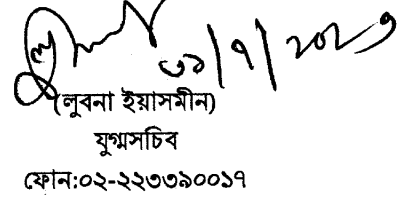 ৩১/৭/২০২৩
(লুবনা ইয়াসমীন)
যুগ্মসচিব
ফোন:০২-২২৩৩৯০০১৭